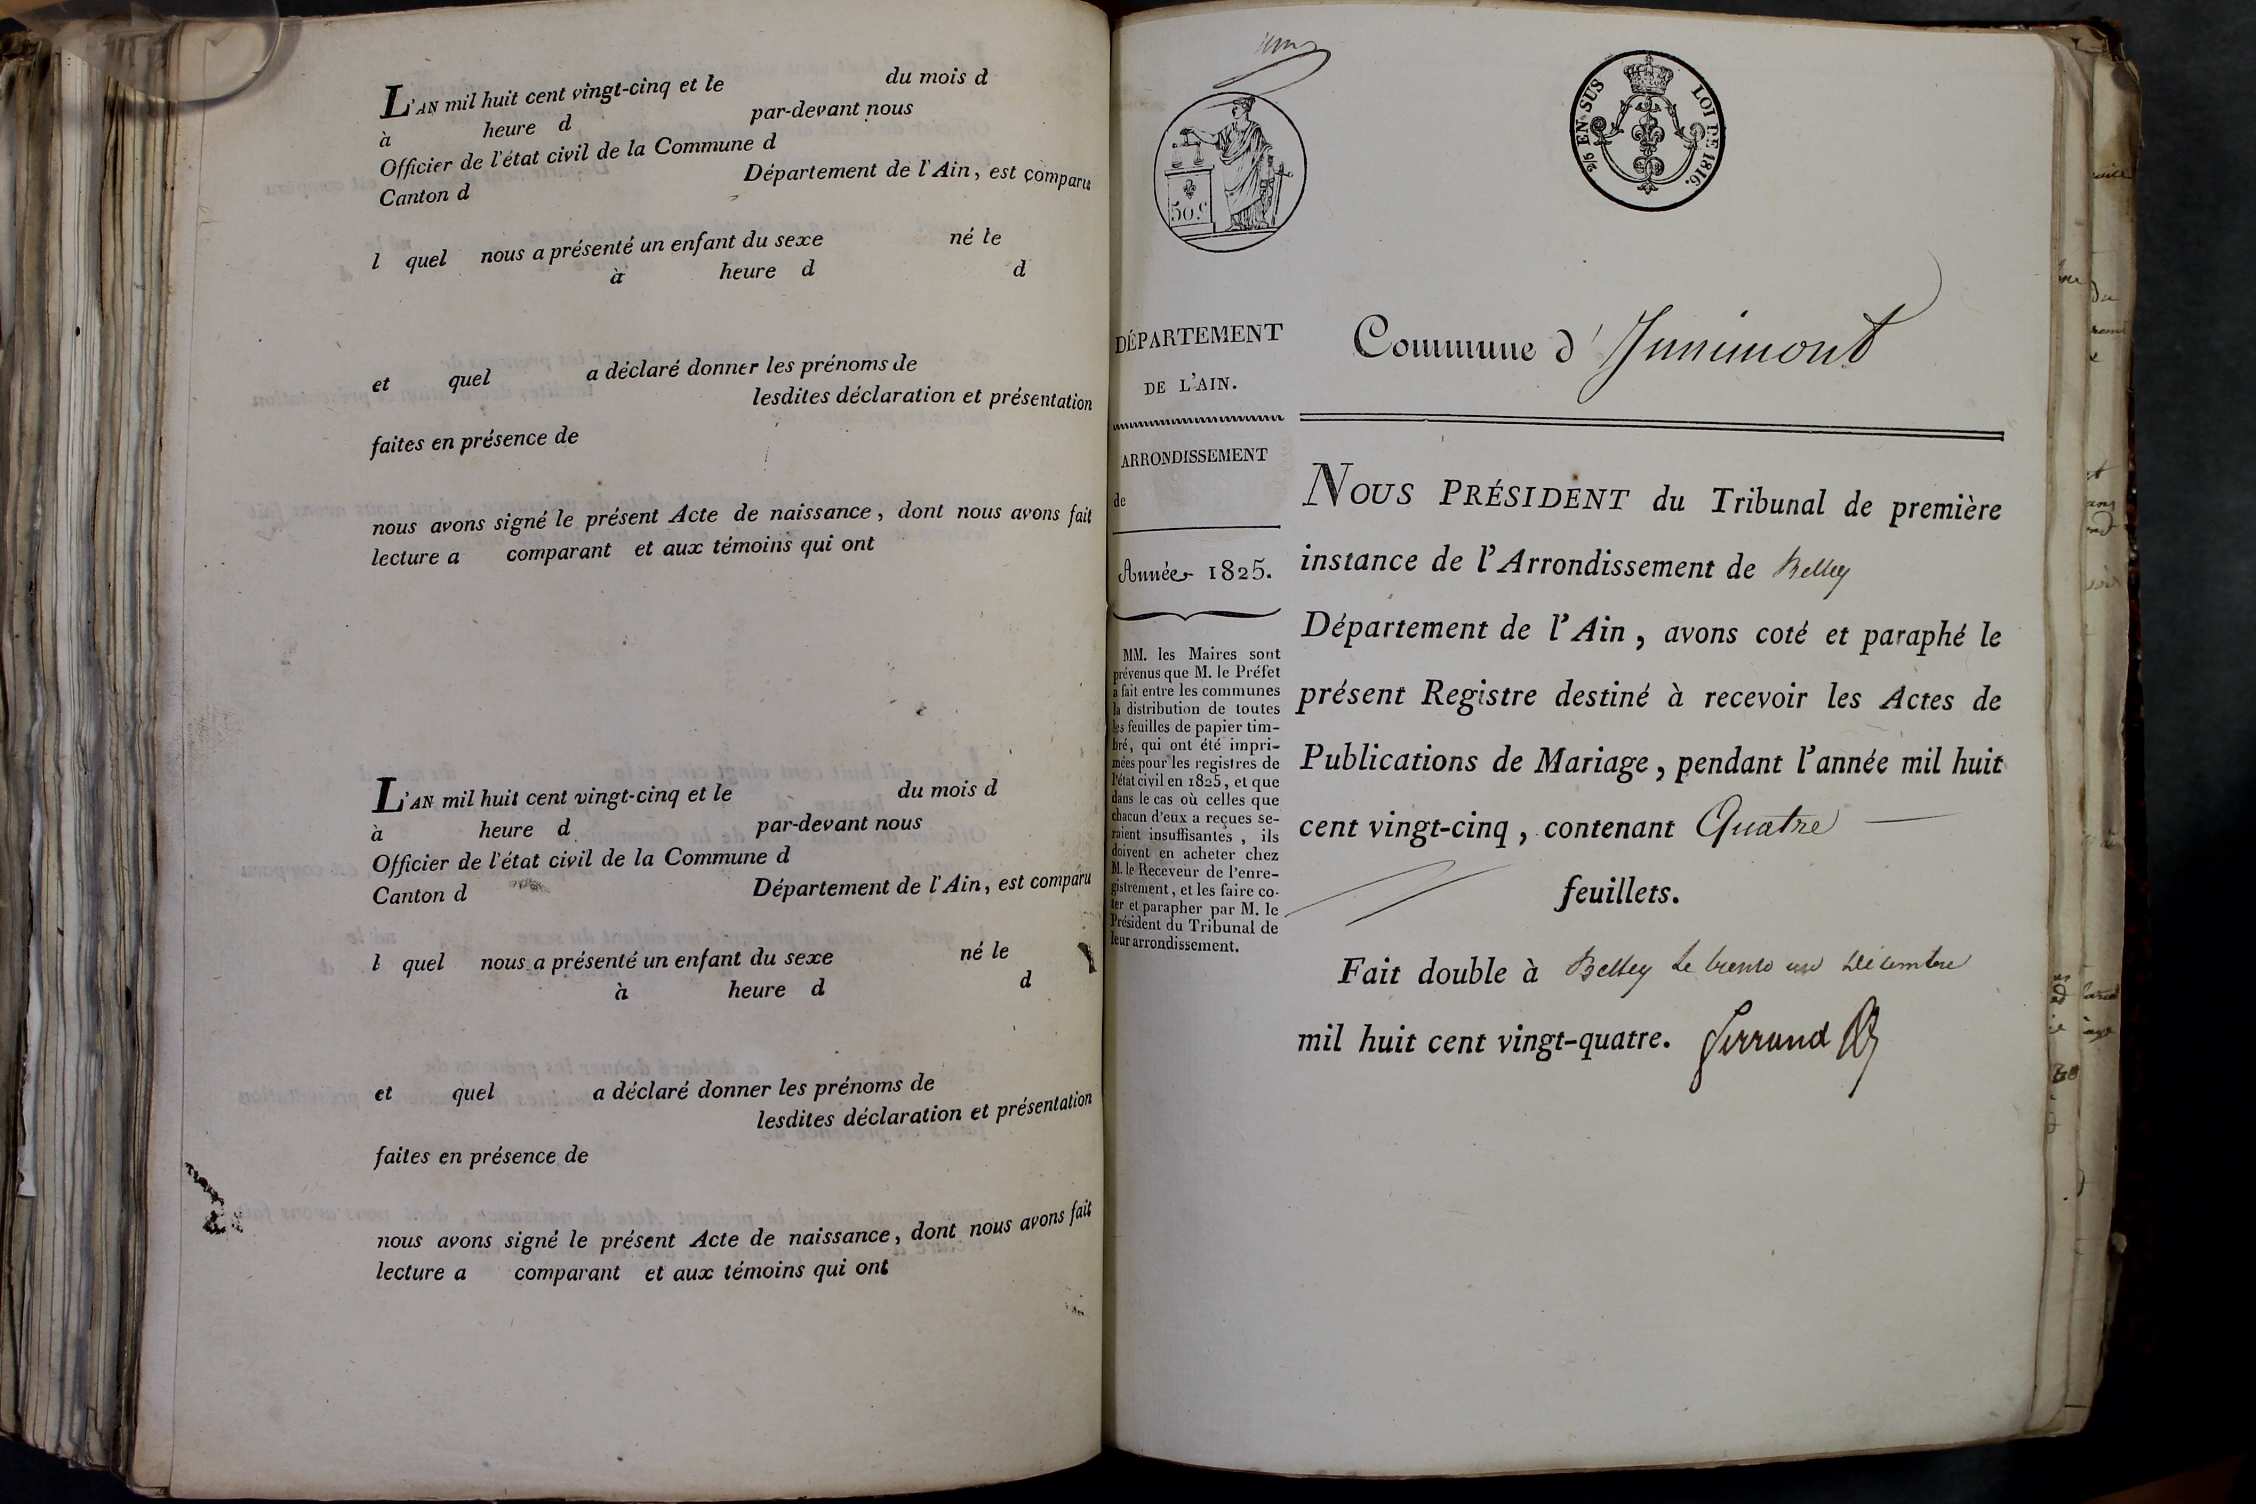 L'AN mil huit cent vingt-cinq et le du mois d
à heure d par-devant nous
Officier de l'état civil de la Commune d
Canton d Département de l'Ain, est comparu
l quel nous a présenté un enfant du sexe né le
à heure d d
et quel a déclaré donner les prénoms de
lesdites déclaration et présentation
faites en présence de
nous avons signé le présent Acte de naissance, dont nous avons fait
lecture a comparant et aux témoins qui ont
L'AN mil huit cent vingt-cinq et le du mois d
à heure d par-devant nous
Officier de l'état civil de la Commune d
Canton d Département de l'Ain, est comparu
l quel nous a présenté un enfant du sexe né le
à heure d d
et quel a déclaré donner les prénoms de
lesdites déclaration et présentation
faites en présence de
nous avons signé le présent Acte de naissance, dont nous avons fait
lecture a comparant et aux témoins qui ont
50 c.
2/5 EN SUS LOI DE 1816.
DÉPARTEMENT
DE L'AIN.
ARRONDISSEMENT
de
Année 1825.
MM. les Maires sont
prévenus que M. le Préfet
a fait entre les communes
la distribution de toutes
les feuilles de papier tim-
bré, qui ont été impri-
mées pour les registres de
l'état civil en 1825, et que
dans le cas où celles que
chacun d'eux a reçues se-
raient insuffisantes, ils
doivent en acheter chez
M. le Receveur de l'enre-
gistrement, et les faire co-
ter et parapher par M. le
Président du Tribunal de
leur arrondissement.
Commune d'Innimont
NOUS PRÉSIDENT du Tribunal de première
instance de l'Arrondissement de Belley
Département de l'Ain, avons coté et paraphé le
présent Registre destiné à recevoir les Actes de
Publications de Mariage, pendant l'année mil huit
cent vingt-cinq, contenant Quatre
feuillets.
Fait double à Belley le trente un Décembre
mil huit cent vingt-quatre. Ferrand